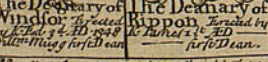 The Deanary of
Windsor. Erected
by K. Ed. 3d. AD 1348
Willm. Mugg first Dean.
The Deanary of
Rippon. Erected by
K. James 1st. AD
first Dean.